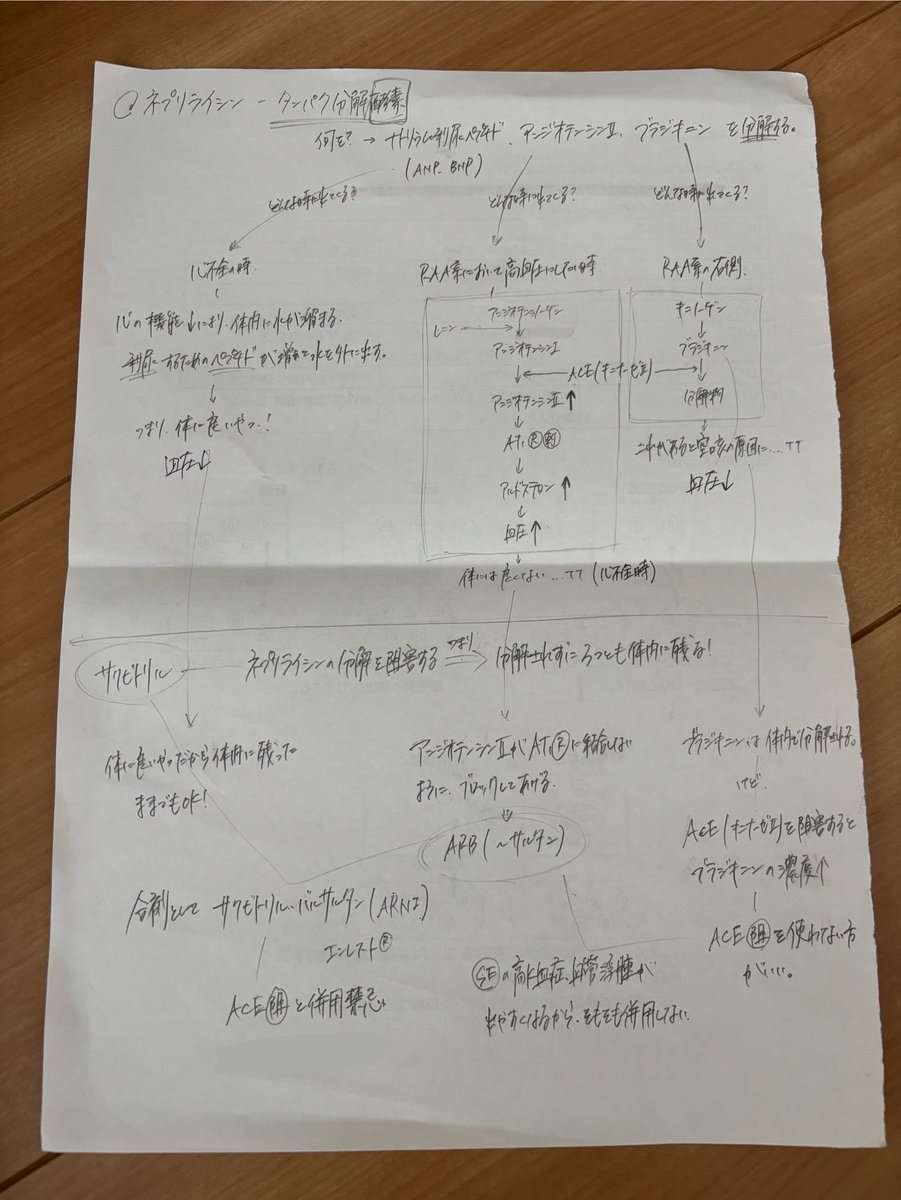 @ネプリライシン - タンパク分解酵素
何を? → ナトリウム利尿ペプチド、アンジオテンシンⅡ、ブラジキニンを分解する。
(ANP、BNP)
どんな時に出てくる?
どんな時に出てくる?
どんな時に出てくる?
心不全の時。
心の機能↓により、体内に水が溜まる。
利尿するためのペプチドが増えて水を外に出す。
つまり、体に良いやつ!
血圧↓
RAA系において高血圧にしたい時
アンジオテンシノーゲン
レニン
アンジオテンシンⅠ
ACE(キニナーゼⅡ)
アンジオテンシンⅡ↑
AT₁ Ⓡ 刺
アルドステロン↑
血圧↑
体には良くない…TT(心不全時)
RAA系の右側
キニノーゲン
ブラジキニン
分解物
これがあると空咳の原因に…TT
血圧↓
サクビトリル
ネプリライシンの分解を阻害する つまり 分解されずに3つとも体内に残る!
体に良いやつだから体内に残った
ままでもOK!
アンジオテンシンⅡがAT₁Ⓡに結合しない
ように、ブロックしてあげる。
ARB(~サルタン)
ブラジキニンは体内で分解される。
けど、
ACE(キニナーゼⅡ)を阻害すると
ブラジキニンの濃度↑
ACE阻を使わない方
がいい。
合剤として サクビトリル・バルサルタン(ARNI)
エンレスト®
ACE阻と併用禁忌
SEの高K血症、血管浮腫が
出やすくなるから、そもそも併用しない。